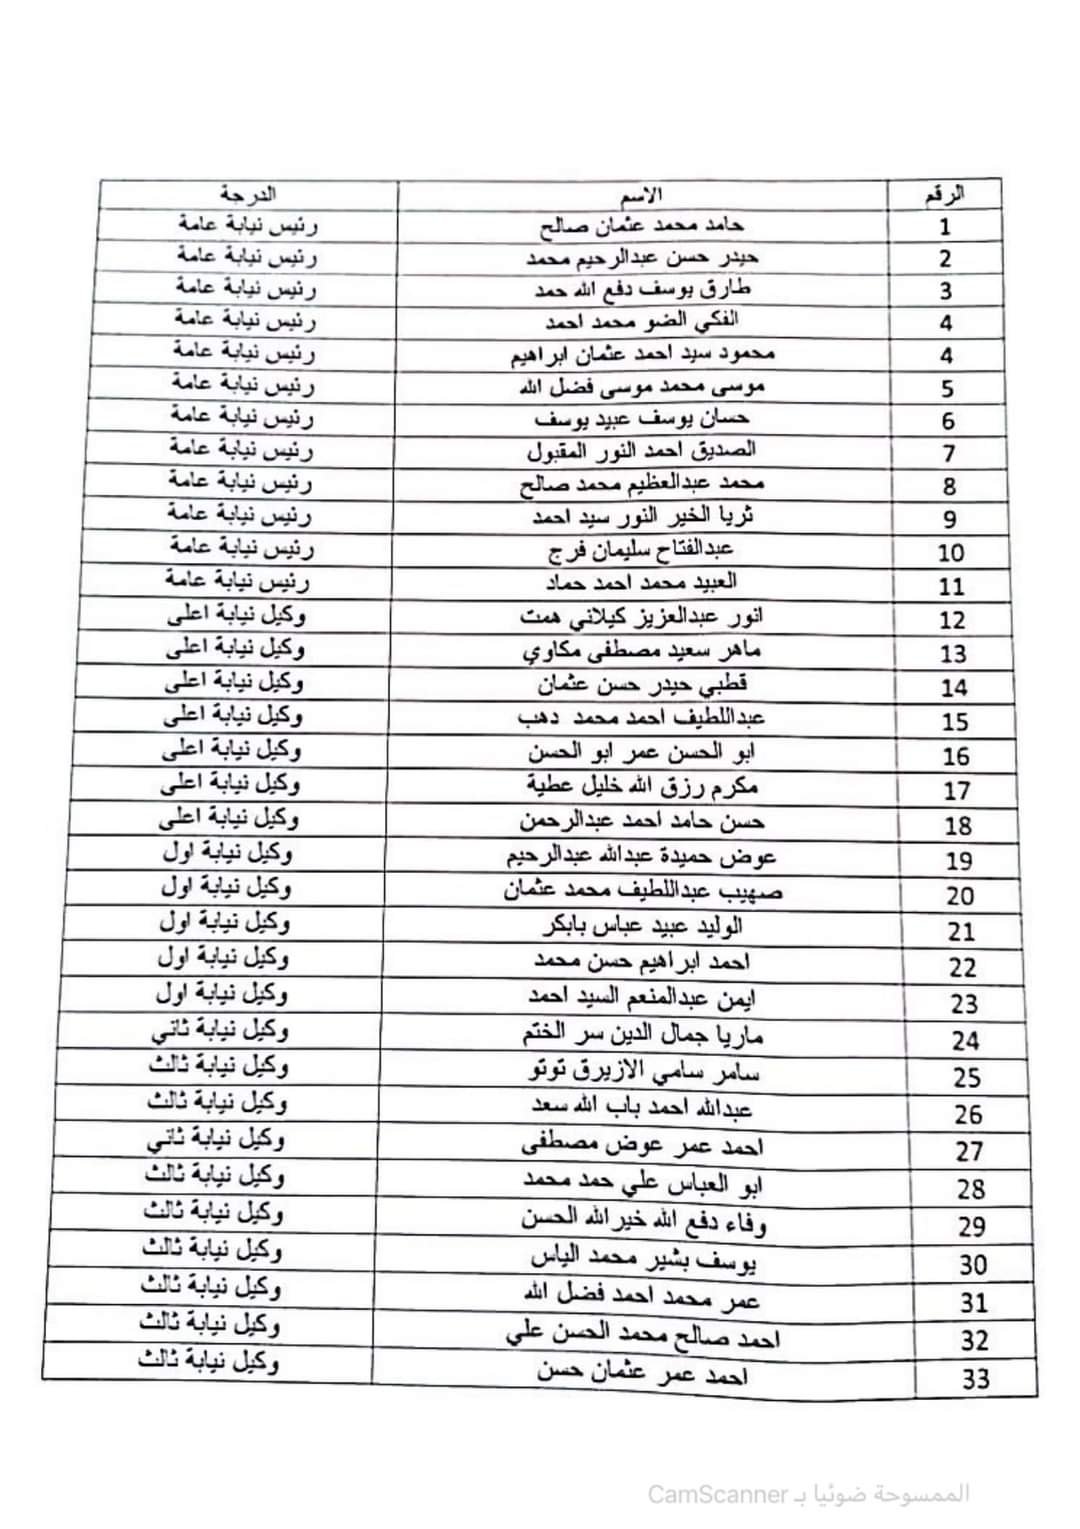 الرقم الاسم الدرجة
1 حامد محمد عثمان صالح رئيس نيابة عامة
2 حيدر حسن عبدالرحيم محمد رئيس نيابة عامة
3 طارق يوسف دفع الله حمد رئيس نيابة عامة
4 الفكي الضو محمد احمد رئيس نيابة عامة
4 محمود سيد احمد عثمان ابراهيم رئيس نيابة عامة
5 موسى محمد موسى فضل الله رئيس نيابة عامة
6 حسان يوسف عبيد يوسف رئيس نيابة عامة
7 الصديق احمد النور المقبول رئيس نيابة عامة
8 محمد عبدالعظيم محمد صالح رئيس نيابة عامة
9 ثريا الخير النور سيد احمد رئيس نيابة عامة
10 عبدالفتاح سليمان فرج رئيس نيابة عامة
11 العبيد محمد احمد حماد رئيس نيابة عامة
12 انور عبدالعزيز كيلاني همت وكيل نيابة اعلى
13 ماهر سعيد مصطفى مكاوي وكيل نيابة اعلى
14 قطبي حيدر حسن عثمان وكيل نيابة اعلى
15 عبداللطيف احمد محمد دهب وكيل نيابة اعلى
16 ابو الحسن عمر ابو الحسن وكيل نيابة اعلى
17 مكرم رزق الله خليل عطية وكيل نيابة اعلى
18 حسن حامد احمد عبدالرحمن وكيل نيابة اعلى
19 عوض حميدة عبدالله عبدالرحيم وكيل نيابة اول
20 صهيب عبداللطيف محمد عثمان وكيل نيابة اول
21 الوليد عبيد عباس بابكر وكيل نيابة اول
22 احمد ابراهيم حسن محمد وكيل نيابة اول
23 ايمن عبدالمنعم السيد احمد وكيل نيابة اول
24 ماريا جمال الدين سر الختم وكيل نيابة ثاني
25 سامر سامي الازيرق توتو وكيل نيابة ثالث
26 عبدالله احمد باب الله سعد وكيل نيابة ثالث
27 احمد عمر عوض مصطفى وكيل نيابة ثاني
28 ابو العباس علي حمد محمد وكيل نيابة ثالث
29 وفاء دفع الله خيرالله الحسن وكيل نيابة ثالث
30 يوسف بشير محمد الياس وكيل نيابة ثالث
31 عمر محمد احمد فضل الله وكيل نيابة ثالث
32 احمد صالح محمد الحسن علي وكيل نيابة ثالث
33 احمد عمر عثمان حسن وكيل نيابة ثالث
الممسوحة ضوئيا بـ CamScanner